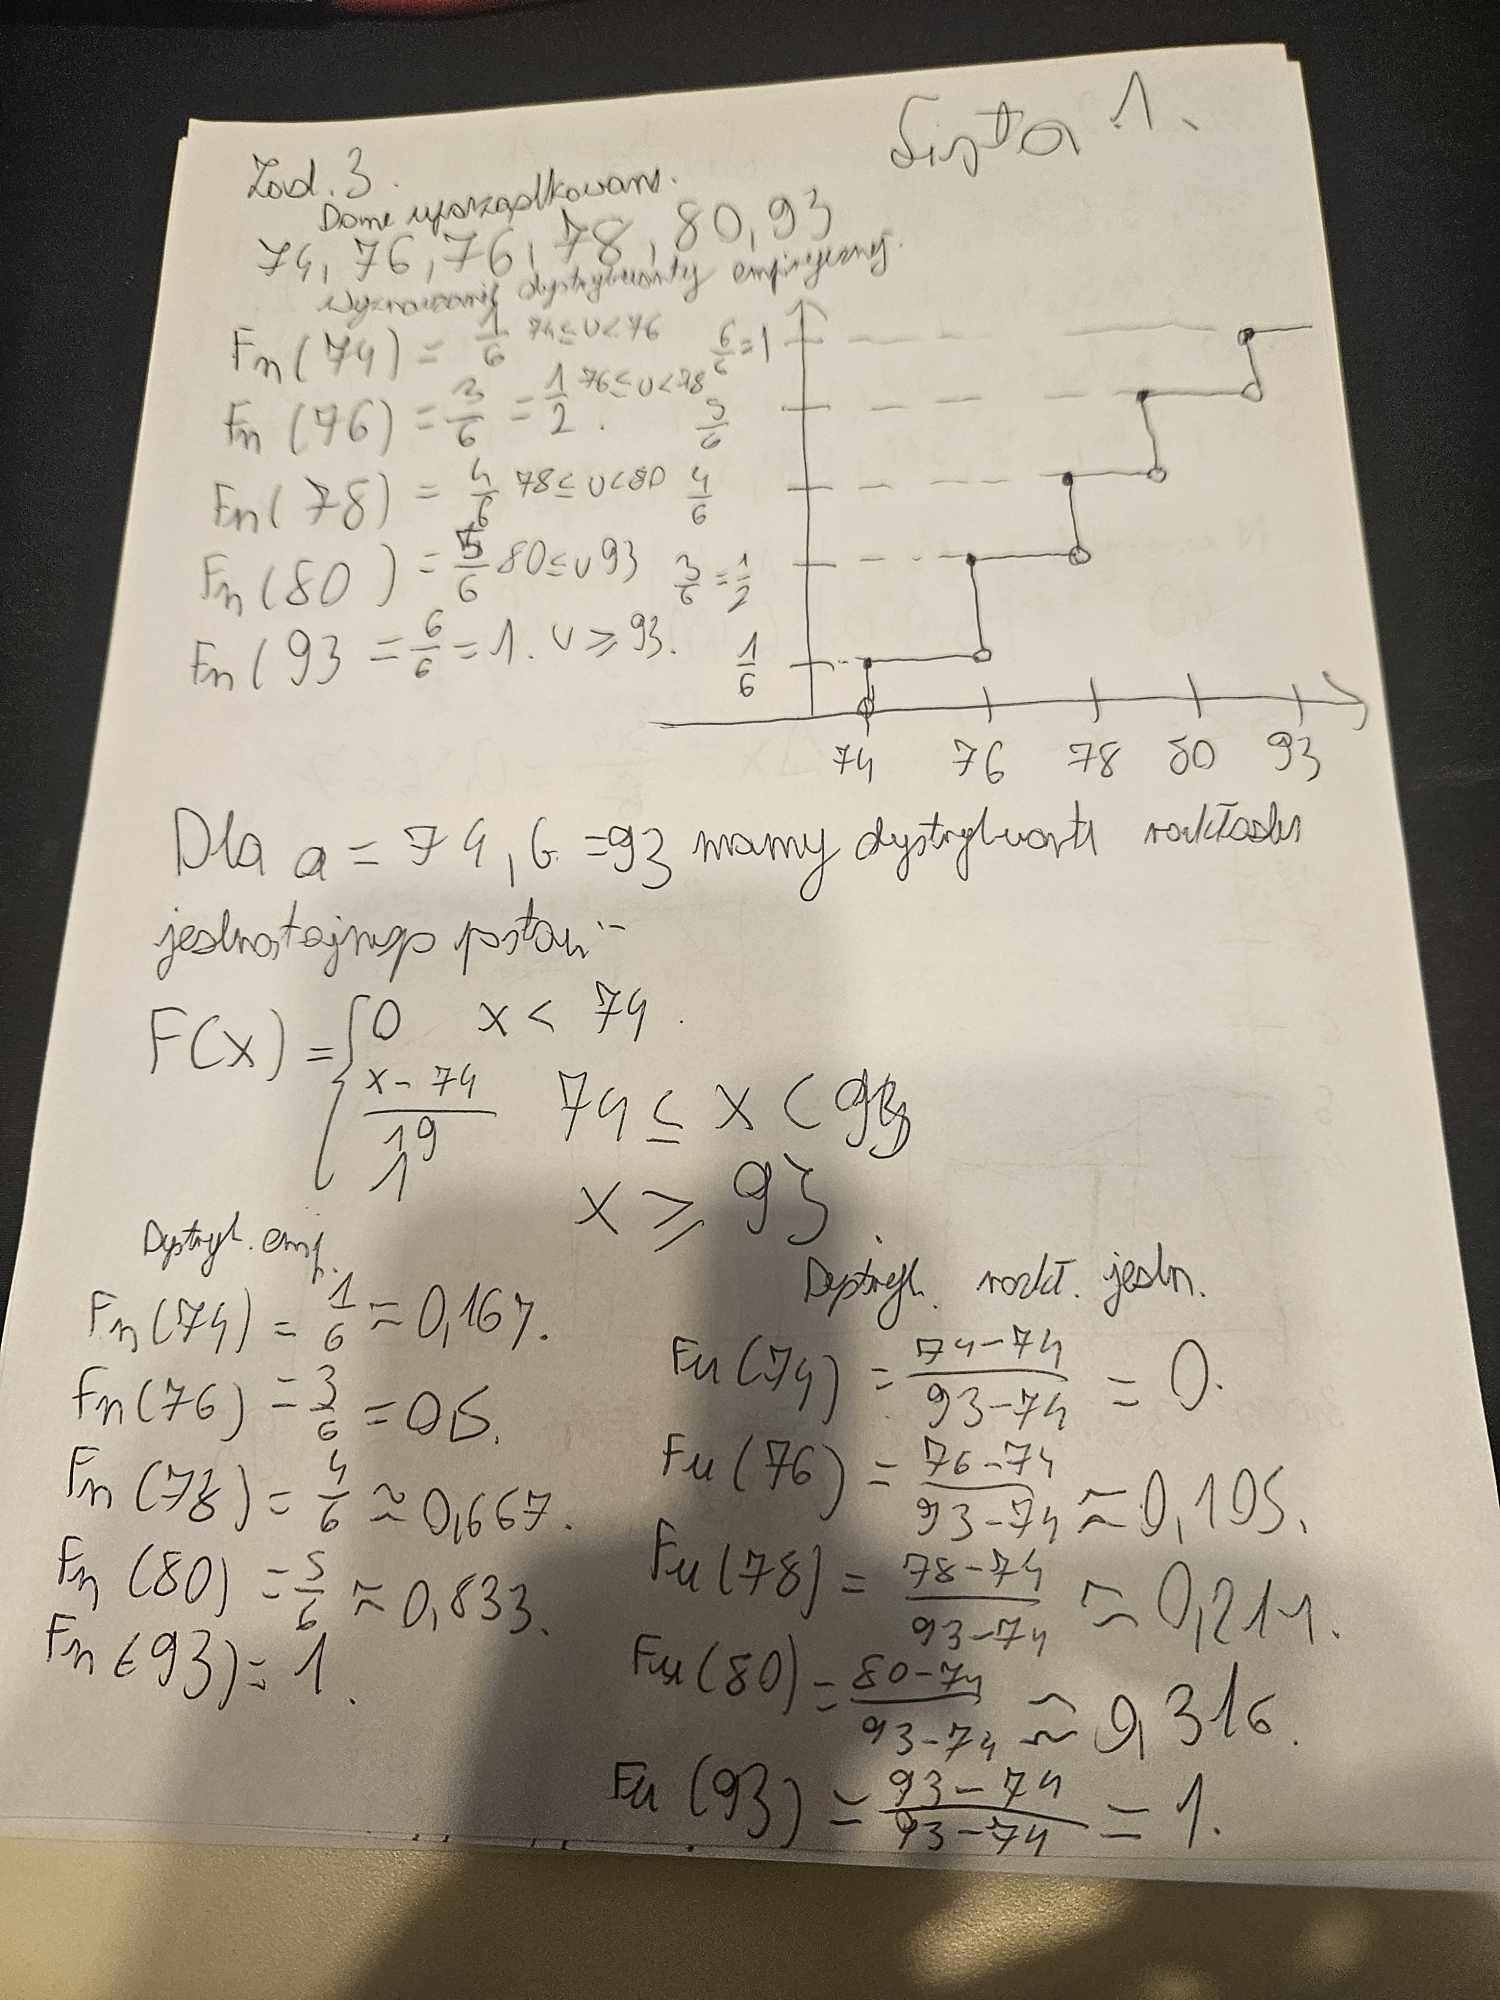 Lista 1.
Zad. 3.
Dane uporządkowane.
74, 76, 76, 78, 80, 93
Wyznaczanie dystrybuanty empirycznej.
Fn(74) = 1/6 74 ≤ u < 76
Fn(76) = 3/6 = 1/2. 76 ≤ u < 78
Fn(78) = 4/6 78 ≤ u < 80
Fn(80) = 5/6 80 ≤ u 93
Fn(93 = 6/6 = 1. u ≥ 93.
6/6 = 1
5/6
4/6
3/6 = 1/2
1/6
74 76 78 80 93
Dla a = 74, b = 93 mamy dystrybuantę rozkładu
jednostajnego postaci:
F(x) = { 0 x < 74.
x - 74 / 19 74 ≤ x < 93
1 x ≥ 93.
Dystryb. emp.
Fn(74) = 1/6 ≈ 0,167.
Fn(76) = 3/6 = 0,5.
Fn(78) = 4/6 ≈ 0,667.
Fn(80) = 5/6 ≈ 0,833.
Fn(93) = 1.
Dystryb. rozkł. jedn.
Fu(74) = 74-74 / 93-74 = 0.
Fu(76) = 76-74 / 93-74 ≈ 0,105.
Fu(78) = 78-74 / 93-74 ≈ 0,211.
Fu(80) = 80-74 / 93-74 ≈ 0,316.
Fu(93) = 93-74 / 93-74 = 1.